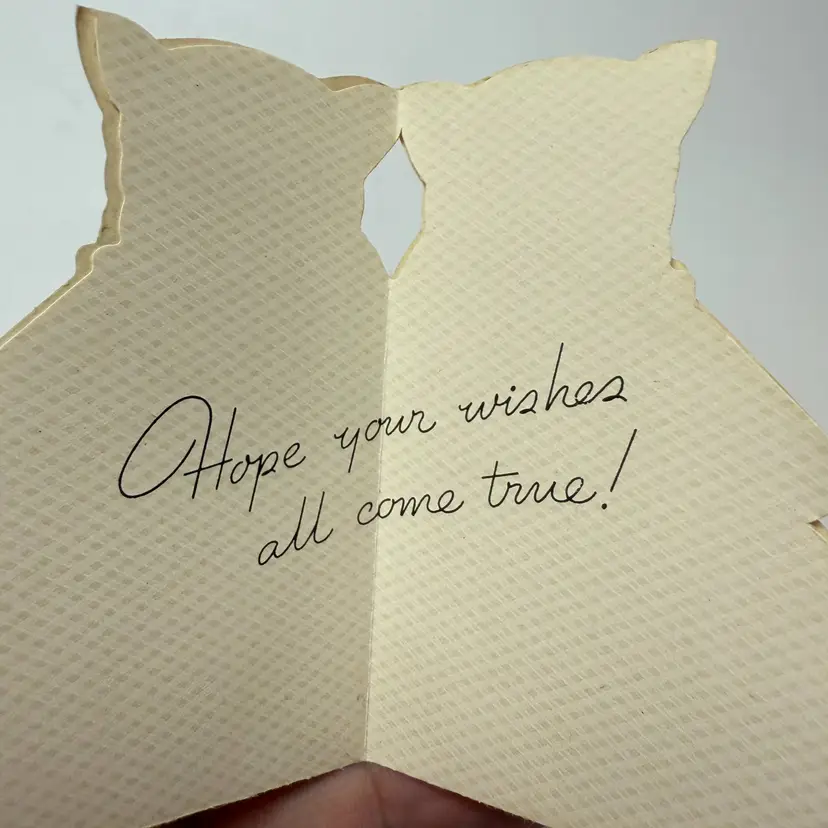 Hope your wishes
all come true!